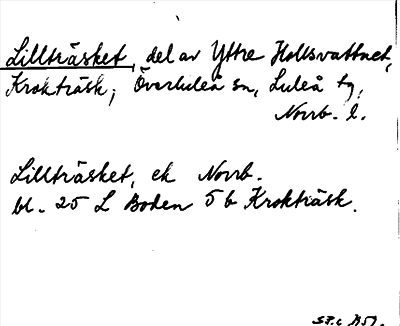 Lillträsket, del av Yttre Hollsvattnet,
Krokträsk; Överluleå sn, Luleå tg,
Norrb. l.
Lillträsket, ek Norrb.
bl. 25 L Boden 5 b Krokträsk.